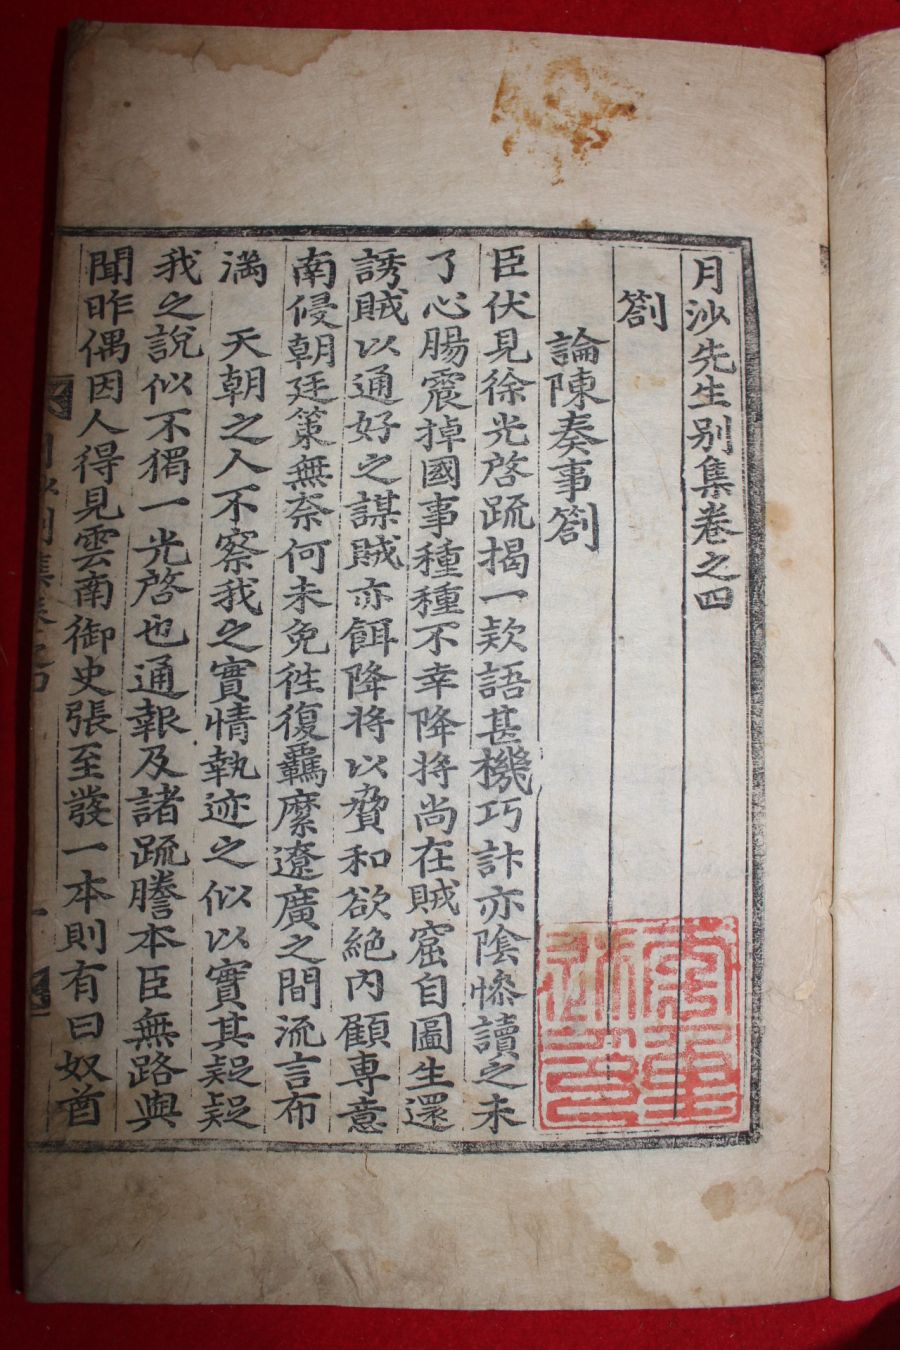 月沙先生別集卷之四
劄
論陳奏事劄
臣伏見徐光啓疏揭一款語甚機巧計亦陰慘讀之未
了心腸震掉國事種種不幸降將尚在賊窟自圖生還
誘賊以通好之謀賊亦餌降將以脅和欲絶內顧專意
南侵朝廷策無奈何未免徃復羈縻遼廣之間流言布
滿 天朝之人不察我之實情執迹之似以實其疑疑
我之說似不獨一光啓也通報及諸疏謄本臣無路與
聞昨偶因人得見雲南御史張至發一本則有曰奴酋